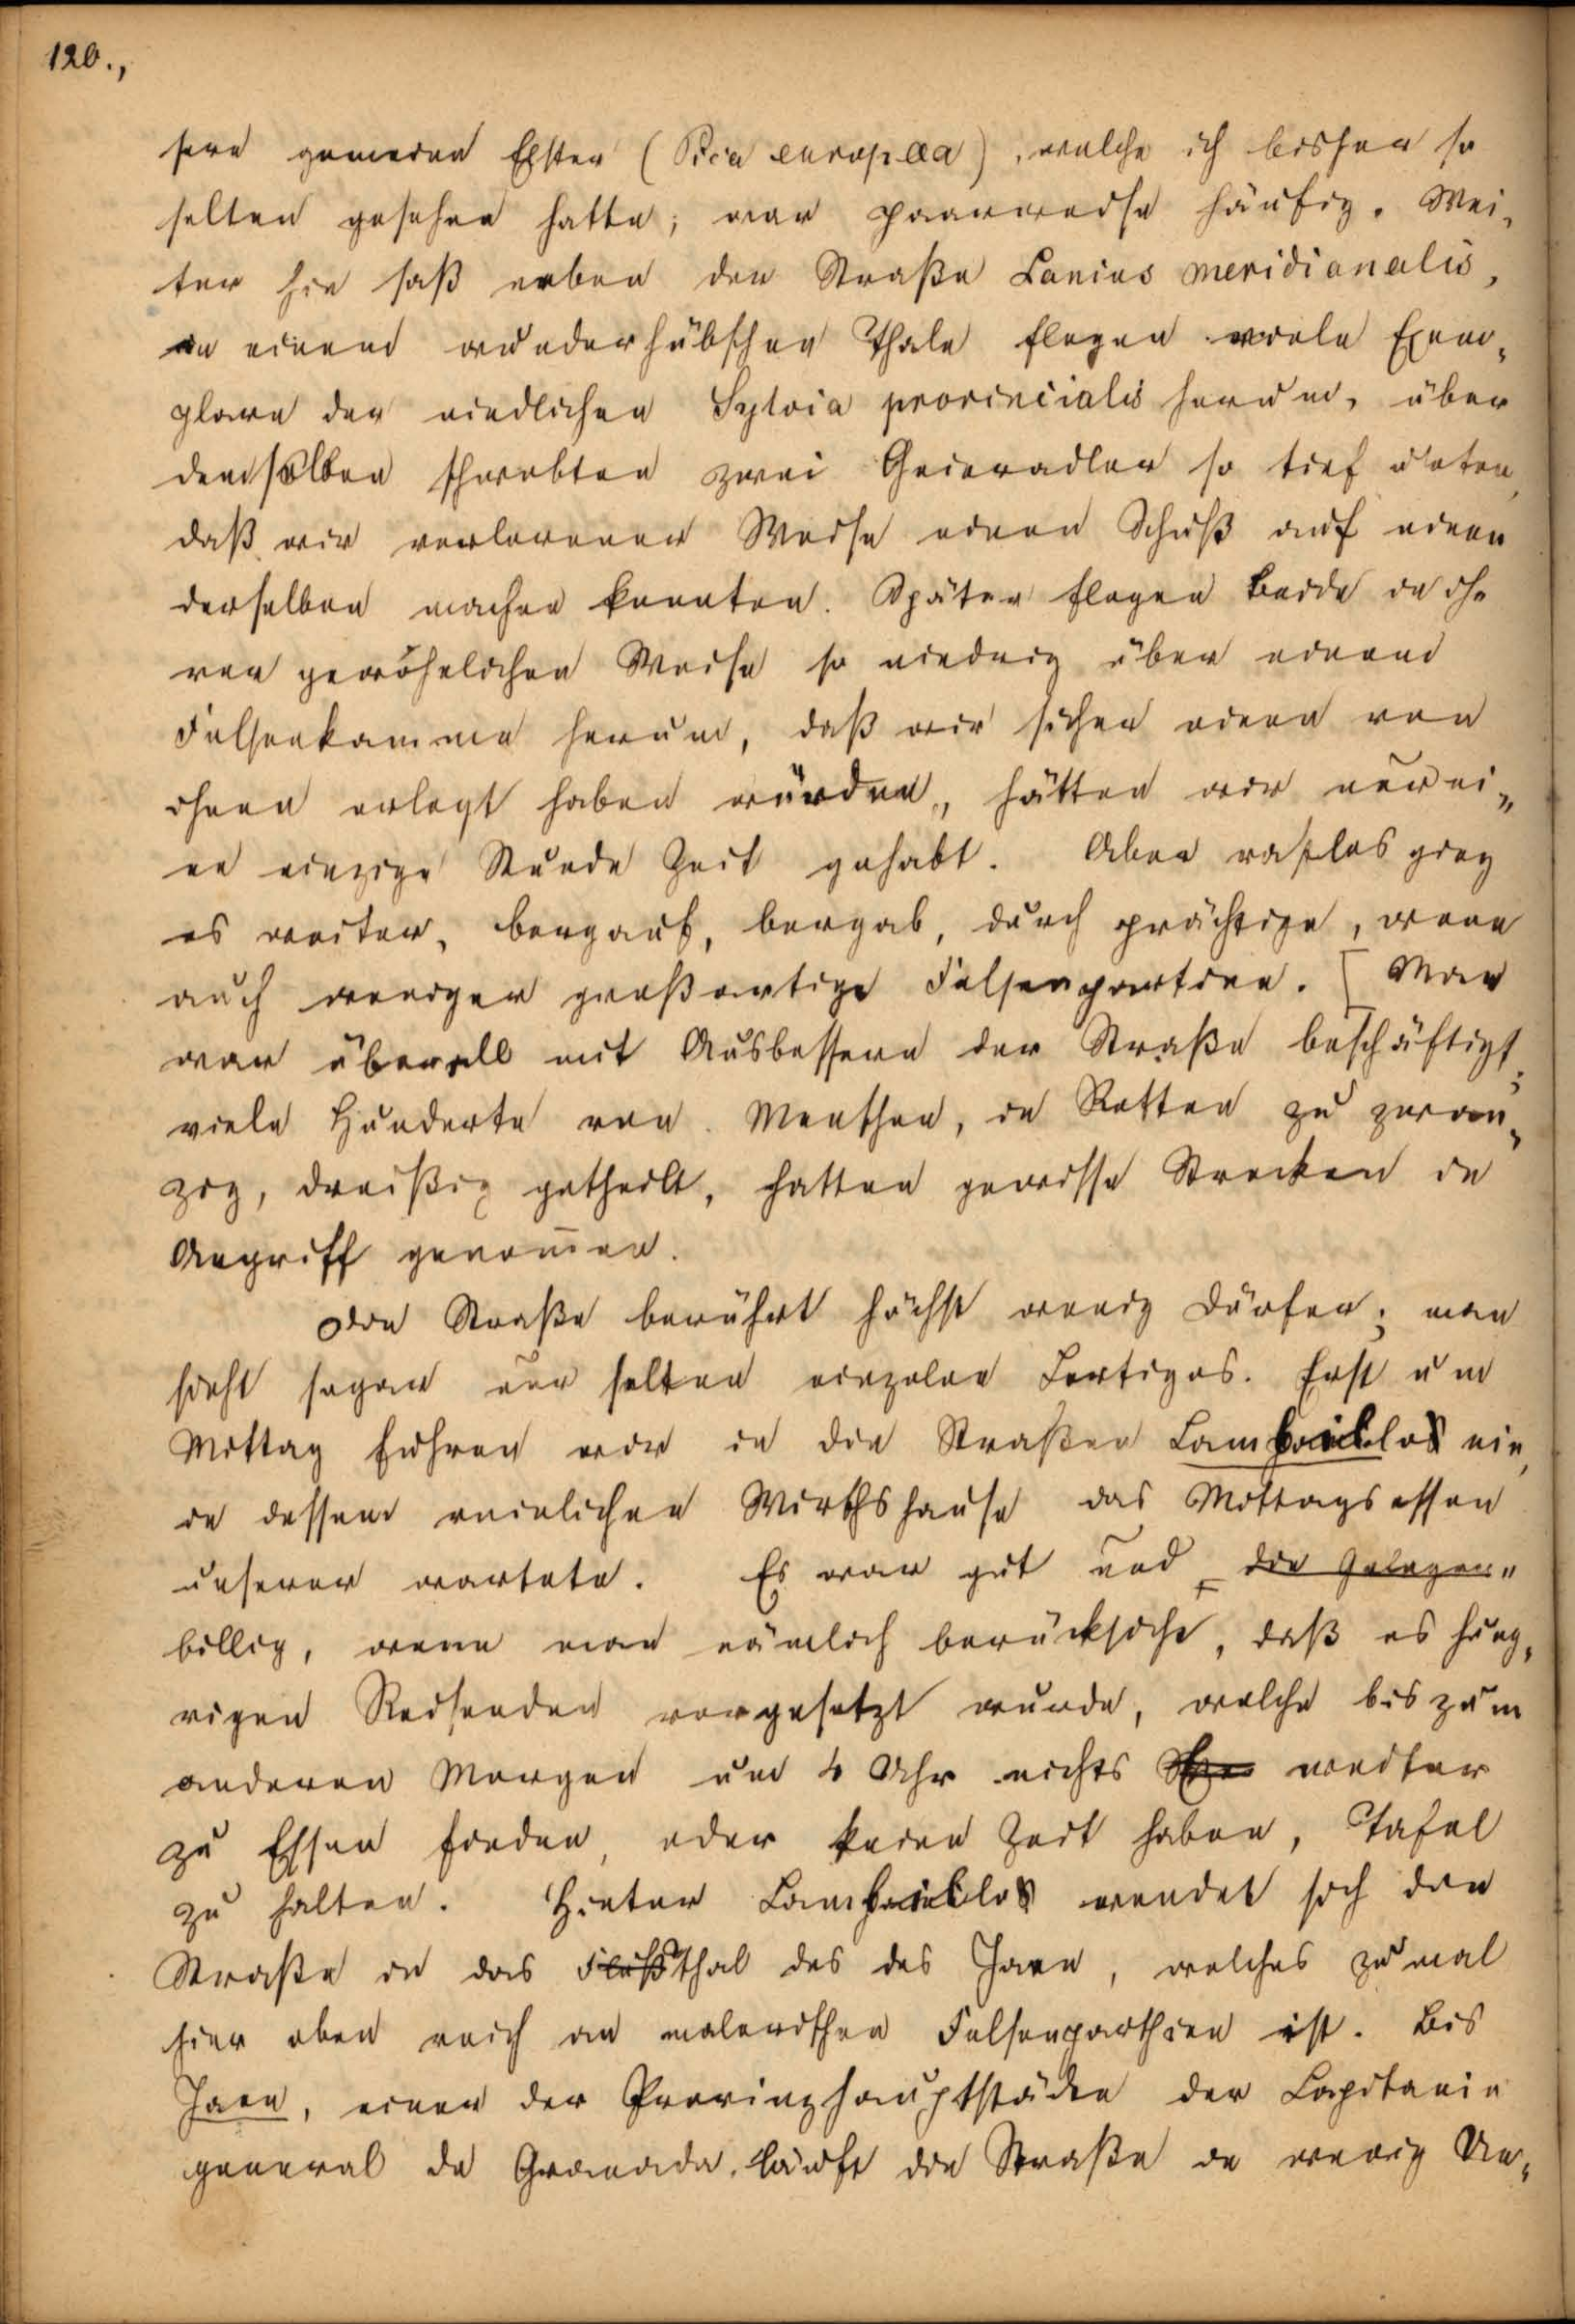 120.,
sere gemeine Elster (Pica europaea), welche ich bisher so
selten gesehen hatte; war paarweise häufig. Wei-
ter hin saß neben der Straße Lanius meridionalis,
in einem wunderhübschen Thale flogen viele Exem-
plare der niedlichen Sylvia provincialis herum, über
demselben schwebten zwei Geieradler so tief unten,
daß wir verlorener Weise einen Schuß auf einen
derselben machen konnten. Später flogen beide in ih-
rer gewöhnlichen Weise so niedrig über einem
Felsenkamme herum, daß wir sicher einen von
ihnen erlegt haben würden, hätten wir nur ei-
ne einzige Stunde Zeit gehabt. Aber rastlos ging
es weiter, bergauf, bergab, durch prächtige, wenn
auch weniger großartige Felsenpartien. [Man
war überall mit Ausbessern der Straße beschäftigt;
viele Hunderte von Menschen, in Rotten zu zwan-
zig, dreißig getheilt, hatten gewisse Strecken in
Angriff genommen.
Die Straße berührt höchst wenig Dörfer; man
sieht sogar nur selten einzelne Cortigos. Erst um
Mittag fuhren wir in die Straßen ein,
in dessen reinlichen Wirthshause das Mittagsessen
unserer wartete. Es war gut und die Gelegen-
billig, wenn man nämlich berücksicht, daß es hung-
rigen Reisenden vorgesetzt wurde, welche bis zum
anderen Morgen um 4 Uhr nichts weiter
zu Essen finden, oder keine Zeit haben, Tafel
zu halten. Hinter wendet sich die
Straße in das Flußthal des des Jaen, welches zumal
hier oben reich an malerischen Felsenparthien ist. Bis
Jaen, einer der Provinzhauptstäden der Capitania
general de Granada, läuft die Straße in wenig Un-